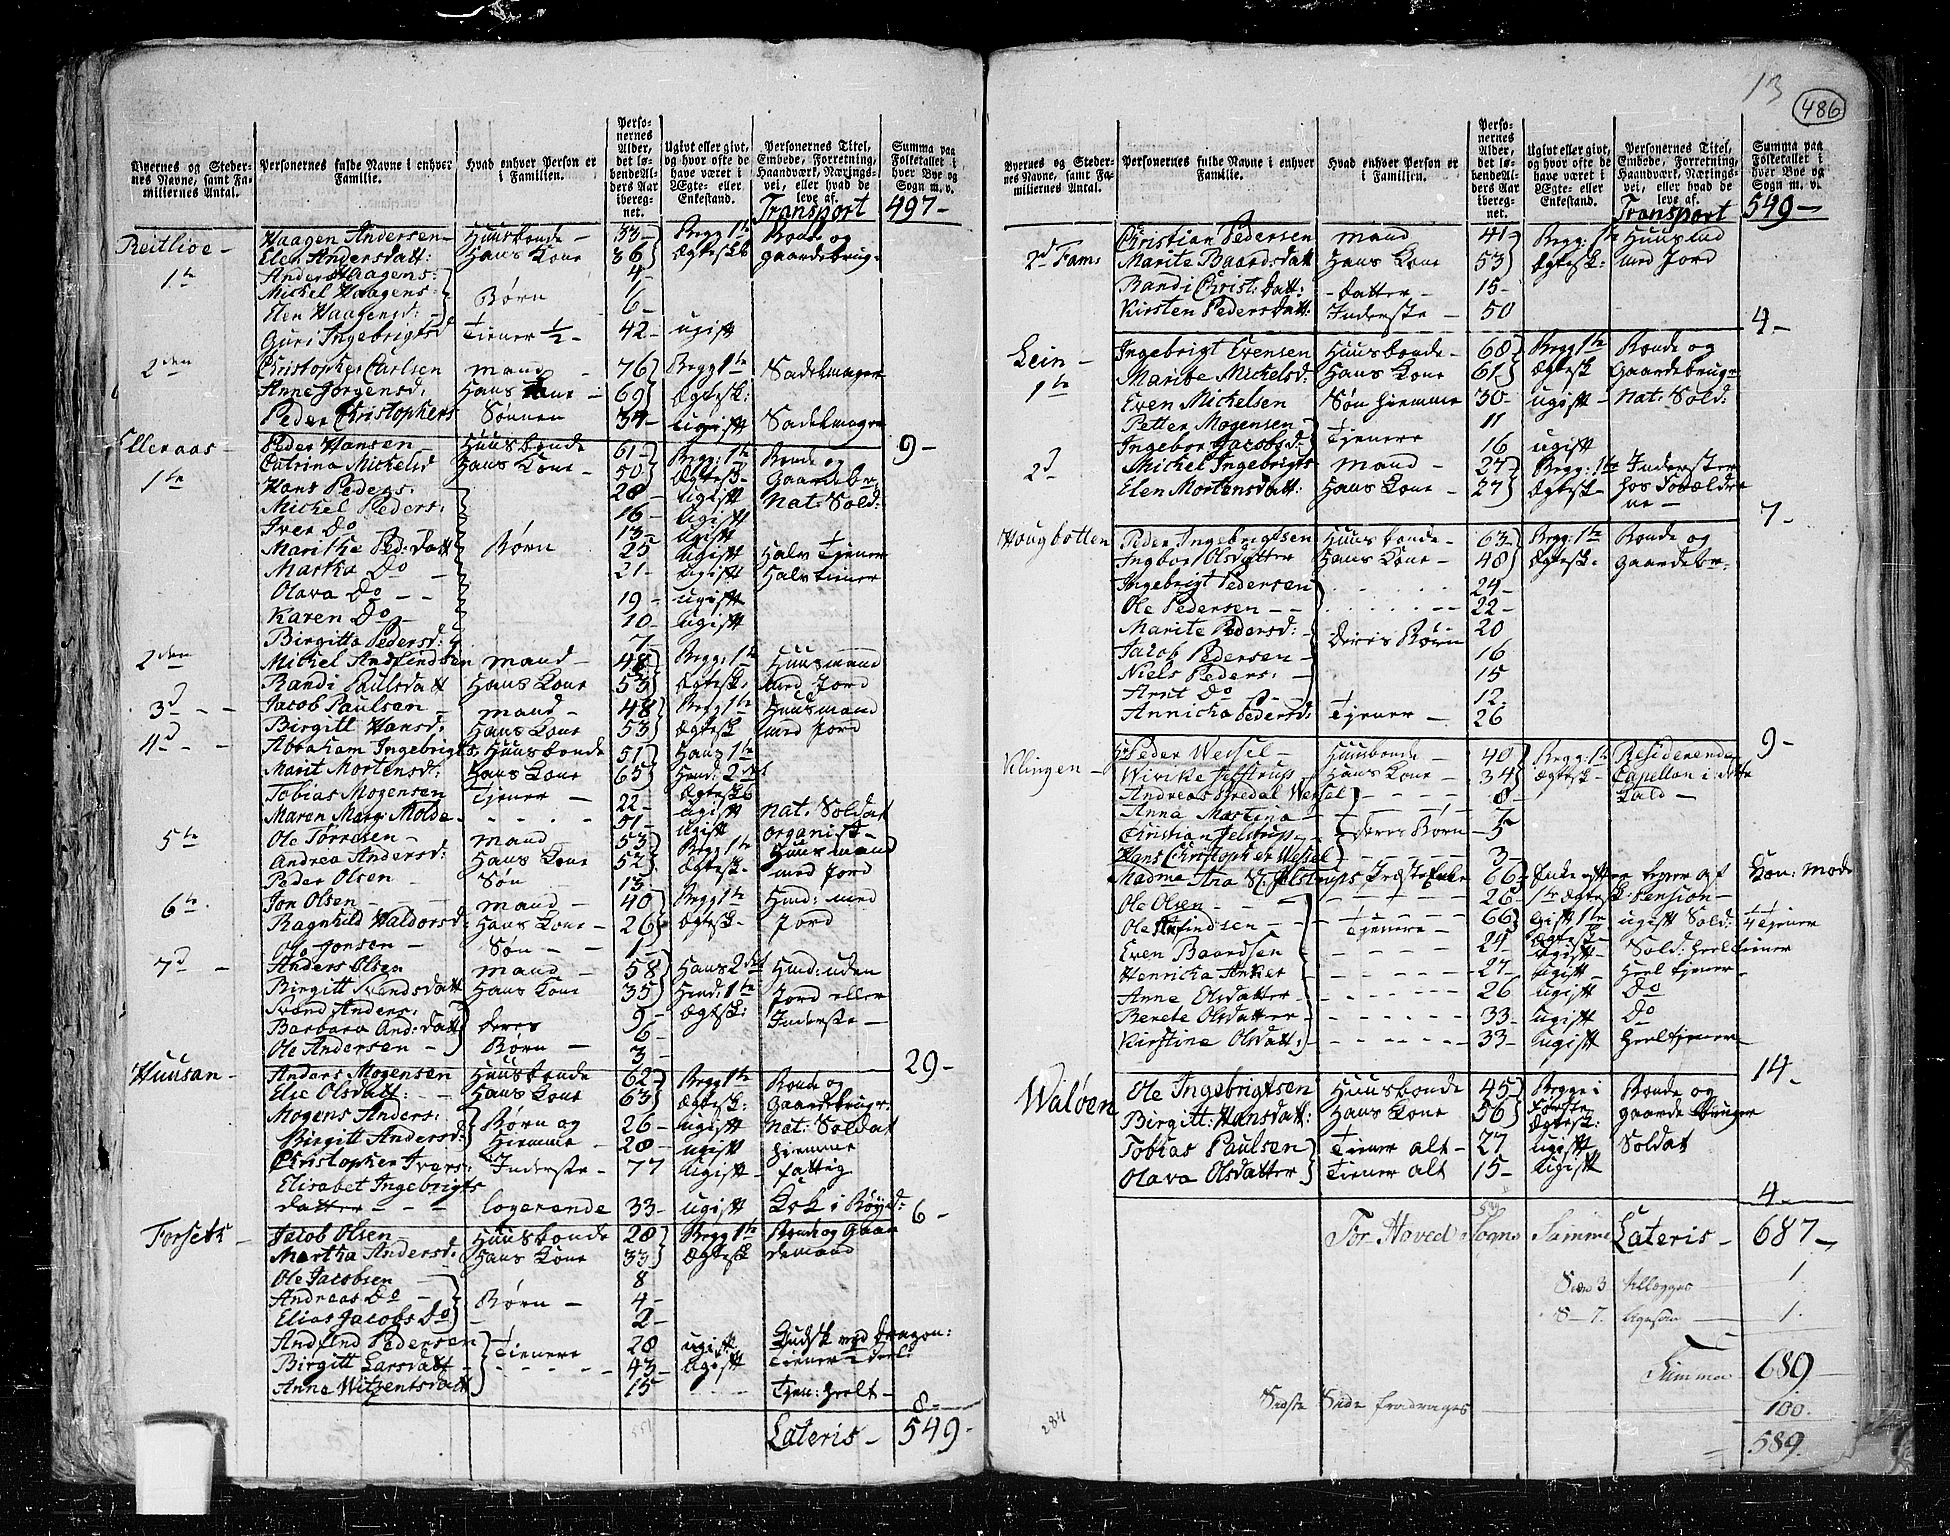 13
486
Byernes og Steder-
nes Navne, samt Fa-
miliernes Antal.
Personernes fulde Navne i enhver
Familie.
Hvad enhver Person er
i Familien.
Perso-
nernes
Alder,
det lø-
bende Al-
ders Aar
iberég-
net.
Ugivt eller givt,
og hvor ofte de
have været i
Ægte- eller
Enkestand.
Personernes Titel,
Embede, Forretning,
Haandværk, Nærings-
vei, eller hvad de
leve af.
Summa paa
Folketallet i
hver Bye og
Sogn m. v.
Transport 497-
Reitlioe - Haagen Andersen - Huusbonde - 33 Begg 1te Bonde og
Elen Andersdatt: Hans Kone 36 Ægtesk gaardebrug-
1te Anders Haagens: 4
Mickel Haagens: Børn 1
Elen Haagensd: 6-
Guri Ingebrigtsd Tiener ½- 42- ugift
2den Christopher Carlsen mand 76 Begg 1te Sadelmager
Anne Jørgensd: Hans Kone - 69 Ægtesk:
Peder Christophers Sønnen 34- ugift Sadelmager
9-
Elleraas - Peder Hansen Huusbonde 61 Begg: 1te Bonde og
1te Catrina Mickelsd Hans Kone - 50 Ægtesk- Gaardebr
Hans Peders: 28 ugift Nat: Sold:
Mickel Peders: 16 ugift
Iver Do 13 ugift
Marithe Ped: datt Børn 25 ugift Halv Tjener
Martha Do - 21- ugift Halv tiener
Olava Do - - 19 - ugift
Karen Do 10- ugift
Birgitta Pedersd: 7
2den Mickel Andfindsen mand - 48 Begg: 1te Huusmand
Randi Paulsdatt Hans Kone 53 Ægtesk: med Jord
3d - - Jacob Paulsen - mand - 48 Begg 1te Huusmand
Birgitt Hansd: Hans Kone 53 Ægtesk med Jord
4d - - Abraham Ingebrigts Huusbonde 51 Hans 1te
Marit Mortensd: Hans Kone 65 Hend: 2det
Ægtesk
Tobias Mogensen Tjener - 22- ugift Nat: Soldat
Maren Marg: Molde - 51- ugift organist -
5te Ole Tørresen - mand 53 Begg 1te Huusmand
Andrea Andersd: Hans Kone 52 Ægtesk- med Jord
Peder Olsen - Søn - 13
6te Jon Olsen - mand - 40 Begg 1te Hmd: med
Ragnhild Waldorsd: Hans Kone - 26 Ægtesk Jord
Ole Jonsen - Søn - 1-
7d - Anders Olsen mand - 58 Hans 2det Hmd: uden
Birgitt Svendsdatt Hans Kone 35 Hend: 1te Jord eller
Svend Anders: deres 9- Ægtesk: Inderste -
Barbara And: datt Børn - 6
Ole Andersen - 3-
29-
Huusan - Anders Mogensen Huusbonde 62 Begg 1te Bonde og
Else Olsdatt: - - Hans Kone 63 Ægtesk: Gaardebruger:
Mogens Anders: Børn og 26- ugift Nat: Soldat
Birgitt Andersd: Hiemme - 28- ugift hiemme
Christopher Ivers: Inderste - 77 ugift - fattig
Elisabet Ingebrigts
datter - - - logerende 33- ugift
6-
Forseth - Jacob Olsen Huusbonde 28 Begg 1te Bonde og Gaar
Martha Andersd: Hans Kone 33 Ægtesk demand
Ole Jacobsen 8
Andreas Do - Børn - 4-
Elias Jacobs Do - 2-
Andfind Pedersen Tienere 28 ugift
Birgitt Larsdatt - 43- ugift
Anne Witzentsdatt 15 Tjen: heelt -
8-
551
Lateris - 549-
Byernes og Steder-
nes Navne, samt Fa-
miliernes Antal.
Personernes fulde Navne i enhver
Familie.
Hvad enhver Person er
i Familien.
Perso-
nernes
Alder,
det lø-
bende Al-
ders Aar
iberég-
net.
Ugivt eller givt,
og hvor ofte de
have været i
Ægte- eller
Enkestand.
Personernes Titel,
Embede, Forretning,
Haandværk, Nærings-
vei, eller hvad de
leve af.
Summa paa
Folketallet i
hver Bye og
Sogn m. v.
Transport 549-
2d Fam: Christian Pedersen mand 41 Begg: 1te Huusmd
Marite Baardsdatt Hans Kone 53 Ægtesk: med Jord
Randi Christ: datt: - datter - 15-
Kirsten Pedersdatt: Inderste - 50
4-
Lein - Ingebrigt Evensen Huusbonde - 68 Begg 1te Bonde og
1te Marite Mickelsd: Hans Kone 61 Ægtesk Gaardebruger
Even Mickelsen Søn hiemme 30- ugift - Nat: Sold:
Petter Mogensen - Tjenere 11
Ingebor Jacobsd: 16 ugift
2d Mickel Ingebrigts - mand - 27 Begg: 1te Inderster
Elen Mortensdatt: Hans Kone - 27 Ægtesk- hos Forældre
ne -
7-
Hougbotten Peder Ingebrigtsen Huusbonde - 63 Begg: 1te Bonde og
Ingbor Olsdatter Hans Kone - 48 Ægtesk- gaardebr-
Ingebrigt Pedersen 24-
Ole Pedersen - - 22-
Marite Pedersd: - deres Børn 20
Jacob Pedersen - 16
Niels Peders: - 15
Arnt Do - 12.
Annicka Pedersd: Tjener - 26
9-
Klingen - Hr Peder Wessel - Huusbonde - 40 Begg: 1te Residerende
Wivike Jelstrup Hans Kone - 34 Ægtesk- Capellan i dette
Andreas Bredal Wessel 8- Kald -
Anna Martina -
Christian Jelstrup - deres Børn - 5
Hans Christopher Wessel 3-
Madme Ana Jelstrups Præste Enke 66- Enke efter lever af
26- 1te Ægtesk Pension -
Kon: Mode
Ole Olsen -
Ole findsen - Tjenere - 66 gift 1te ugift Sold: Tjener
Even Baardsen 24- ugift - Sold: heel tiener
Henricka Anker 27- ugift - Heel tjener -
Anne Olsdatter - 26 ugift Do
Berete Olsdatter - 33- ugift Do
Kirstine Olsdatt: - 33- ugift Heel tjener -
14-
Waløen Ole Ingebrigtsen Huusbonde 45 Begge i Bonde og
Birgitt: Hansdatt: Hans Kone 56 Første gaarde bruger
Ægtesk:
Tobias Paulsen Tiener alt - 27 ugift Soldat
Olava Olsdatter Tiener alt 15- ugift
4-
For Hoved Sogne Summe Lateris - 687-
Siden 3 tillægges - 1
S - 7. ligesaa - 1.
Summa - 689-
Sidste Side fradrages 100.
589.
284